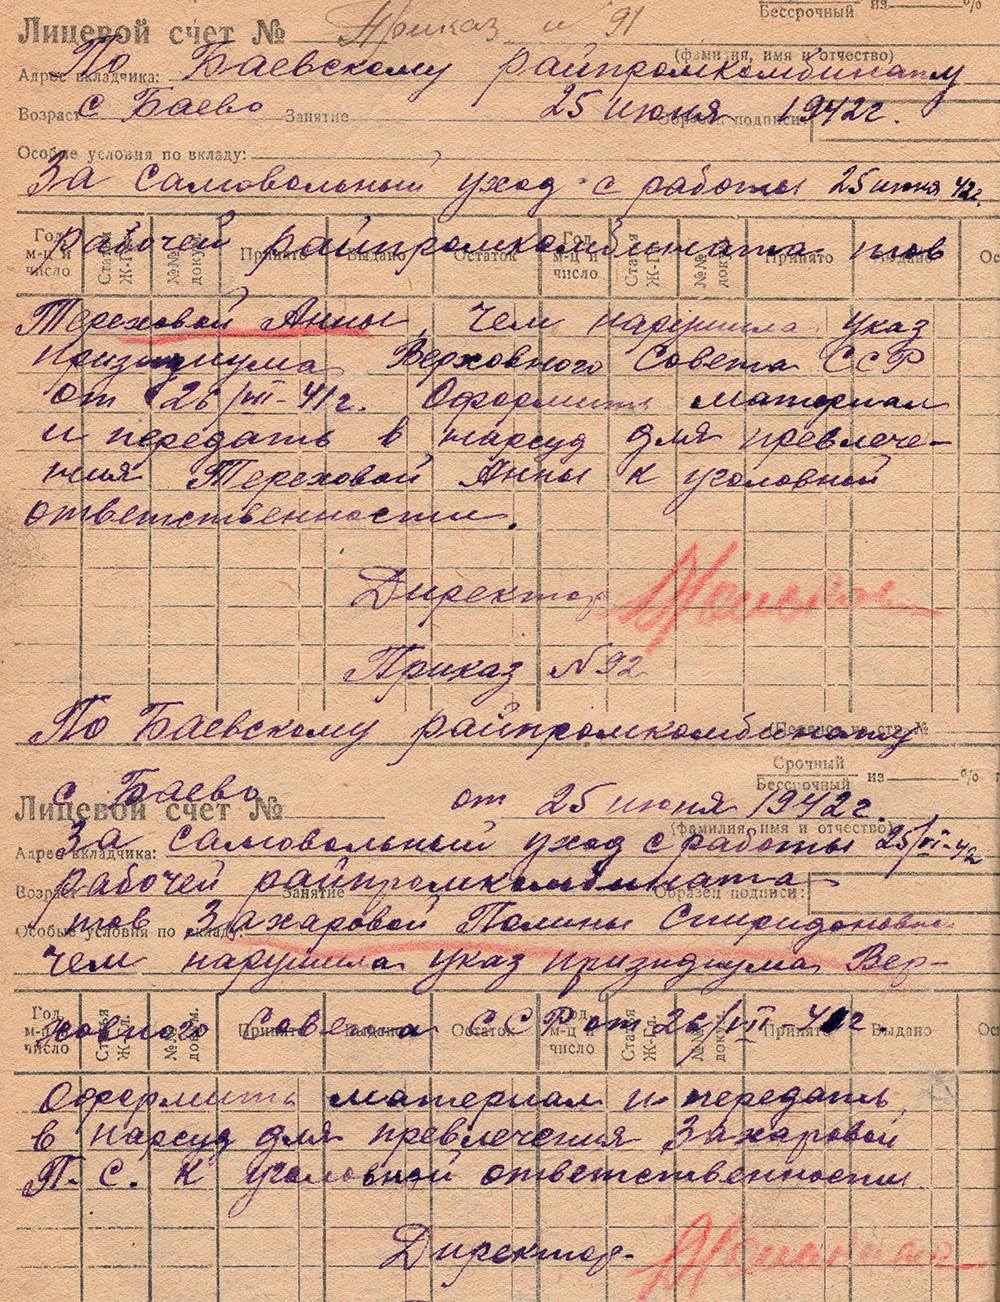 Бессрочный из %
Лицевой счет № Приказ № 91
(фамилия, имя и отчество)
По Баевскому райпромкомбинату
Адрес вкладчика:
с Баево 25 июня 1942г.
Возраст Занятие Образец подписи:
Особые условия по вкладу:
За самовольный уход с работы 25 июня 42г.
рабочей райпромкомбината тов
Год, м-ц и число Статья Ж-Гл. №№ докум. Принято Выдано Остаток Год, м-ц и число Статья Ж-Гл. №№ докум. Принято Выдано Ос
Тереховой Анны, чем нарушила указ
призидиума Верховного Совета СССР
от 26/VII-41г. Оформить материал
и передать в нарсуд для превлече-
ния Тереховой Анны к уголовной
ответственности.
Директор
Приказ № 92
По Баевскому райпромкомбинату
(Перенос на стр. №
Срочный
Бессрочный из %
с Баево от 25 июня 1942г.
Лицевой счет №
(фамилия, имя и отчество)
За самовольный уход с работы 25/VI-42
Адрес вкладчика:
рабочей райпромкомбината
Возраст Занятие Образец подписи:
тов Захаровой Полины Спиридоновны
Особые условия по вкладу:
чем нарушила указ призидиума Вер-
ховного Совета СССР от 26/VII-41г.
Год, м-ц и число Статья Ж-Гл. №№ докум. Принято Выдано Остаток Год, м-ц и число Статья Ж-Гл. №№ докум. Принято Выдано Ос
Оформить материал и передать
в нарсуд для превлечения Захаровой
П.С. к уголовной ответственности
Директор